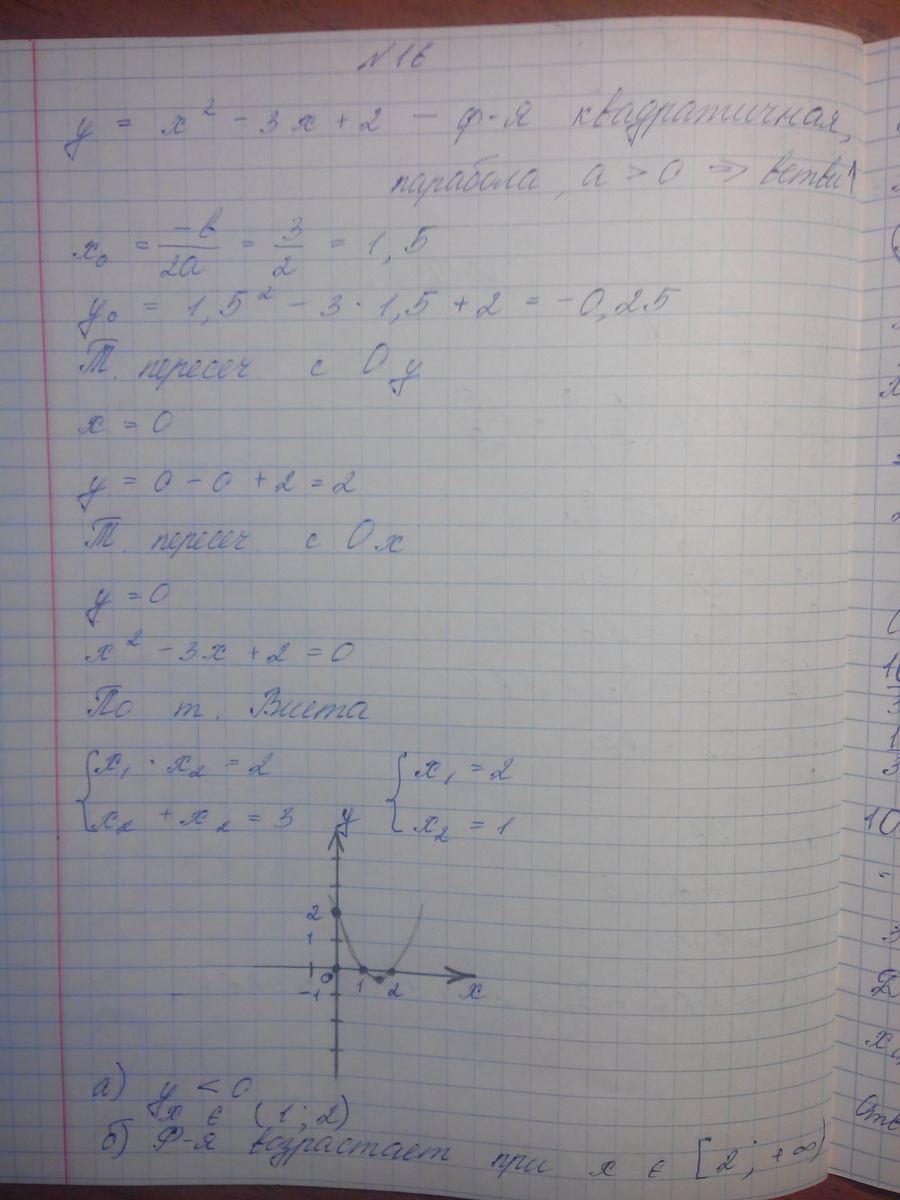 N 16
y = x² - 3x + 2 - ф-я квадратичная,
парабола, a > 0 => ветви↑
x₀ = -b/2a = 3/2 = 1,5
y₀ = 1,5² - 3 · 1,5 + 2 = -0,25
Т. пересеч. с Oy
x = 0
y = 0 - 0 + 2 = 2
Т. пересеч. с Ox
y = 0
x² - 3x + 2 = 0
По т. Виета
{x₁ · x₂ = 2 {x₁ = 2
x₂ + x₂ = 3 x₂ = 1
y
2
1
0 1 2 x
-1
а) y < 0
x ∈ (1; 2)
б) Ф-я возрастает при x ∈ [2; +∞)